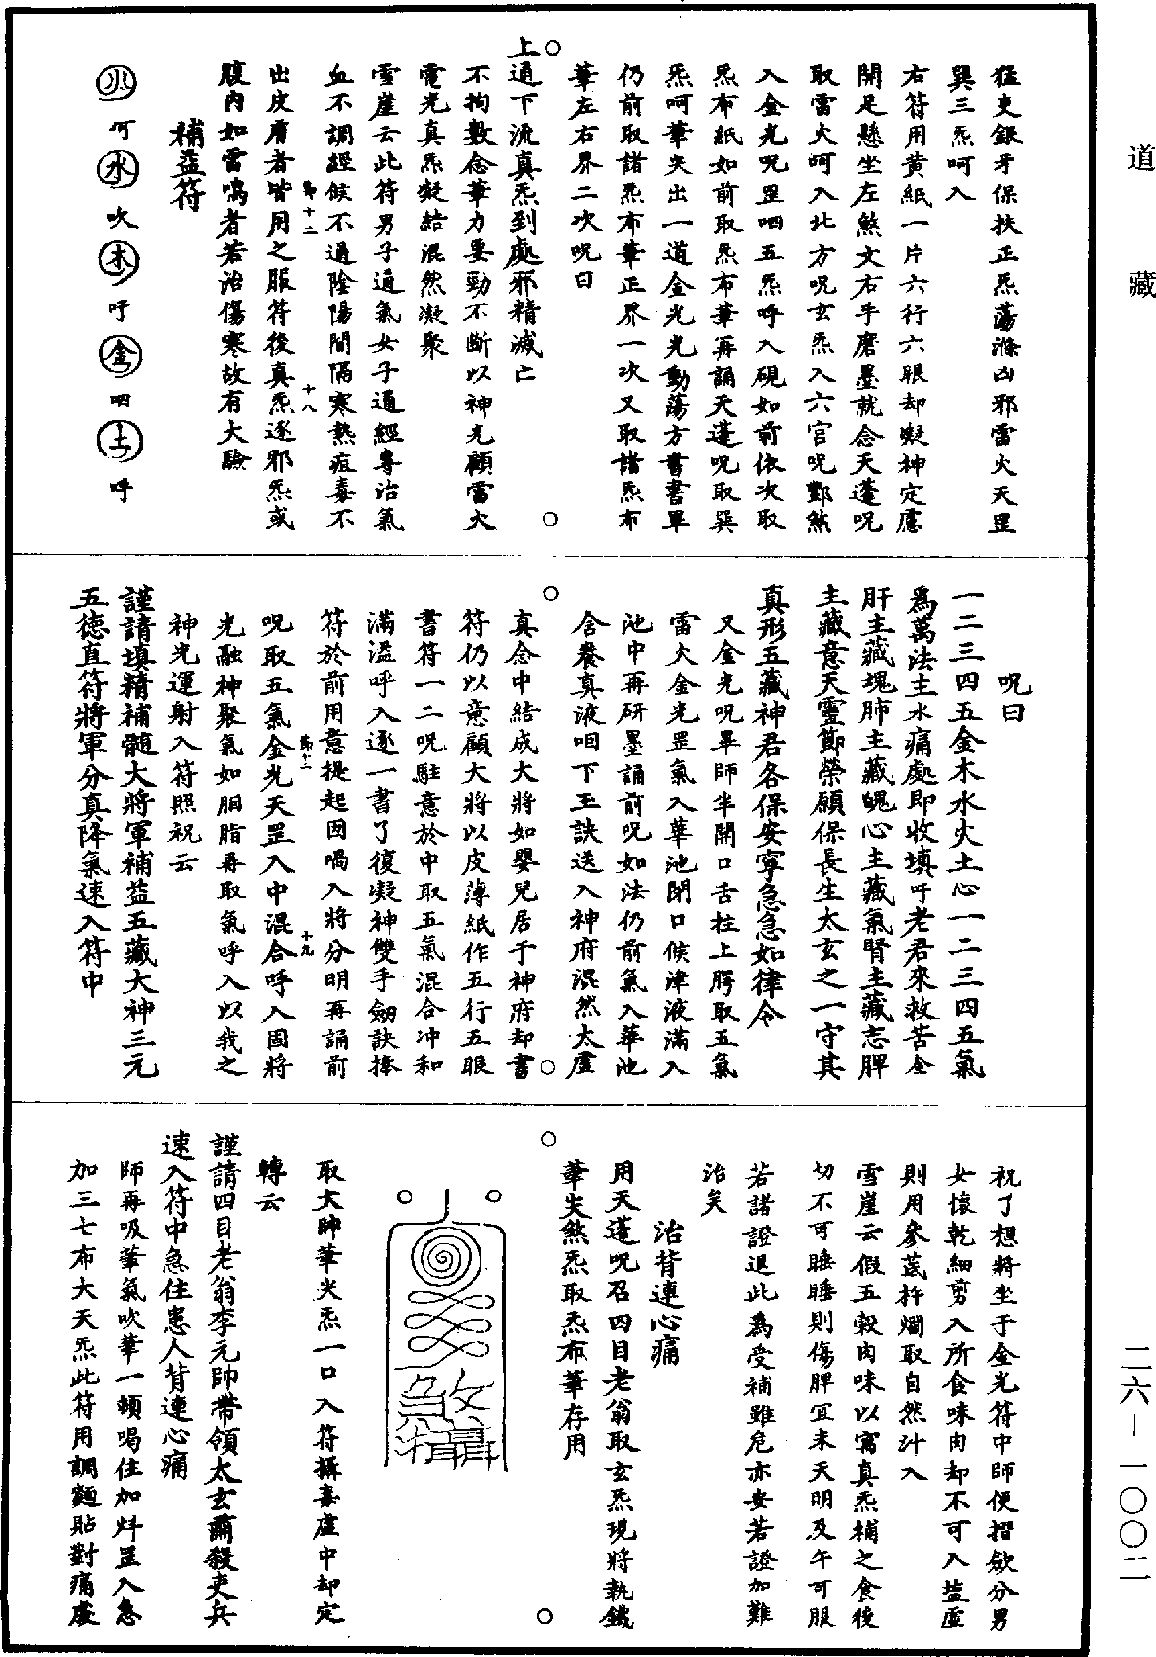 道藏
猛吏銀牙保扶正炁蕩滌凶邪雷火天罡
巽三炁呵入
右符用黃紙一片六行六眼却凝神定慮
開足懸坐左煞文右手磨墨就念天蓬呪
取雷火呵入北方呪玄炁入六宫呪酆煞
入金光呪罡呬五炁呼入硯如前依次取
炁布紙如前取炁布筆再誦天蓬呪取巽
炁呵筆尖出一道金光光動蕩方書書畢
仍前取諸炁布筆正界一次又取諸炁布
筆左右界二次呪曰
上通下流真炁到處邪精滅亡
不拘數念筆力要勁不斷以神光顧雷火
電光真炁凝結混然凝聚
雪崖云此符男子通氣女子通經專治氣
血不調經候不通陰陽間隔寒熱疽毒不
第十二
十八
出皮膚者皆用之服符後真炁逐邪炁或
腹内如雷鳴者若治傷寒故有大驗
補益符
火呵水吹木吁金呬土呼
呪曰
一二三四五金木水火土心一二三四五氣
爲萬法主水痛處即收填吁老君來救苦全
肝主藏塊肺主藏魄心主藏氣腎主藏志脾
主藏意天靈節榮願保長生太玄之一守其
真形五藏神君各保安寧急急如律令
又金光呪畢師半開口舌柱上腭取五氣
雷火金光罡氣入華池閉口候津液滿入
池中再研墨誦前呪如法仍前氣入華池
含養真液咽下玉訣送入神府混然太虛
真念中結成大將如嬰兒居于神府却書
符仍以意顧大將以皮薄紙作五行五眼
書符一二呪駐意於中取五氣混合冲和
滿溢呼入逐一書了復凝神雙手劍訣捧
符於前用意提起因喝入將分明再誦前
第十二
十九
呪取五氣金光天罡入中混合呼入固將
光融神聚氣如胭脂再取氣呼入以我之
神光運射入符照祝云
謹請填精補髓大將軍補益五藏大神三元
五德直符將軍分真降氣速入符中
祝了想將坐于金光符中師便摺歛分男
女懷乾細剪入所食味肉却不可入盐虛
則用參蓍杵爛取自然汁入
雪崖云假五穀肉味以寓真炁補之食後
切不可睡睡則傷脾宜未天明及午可服
若諸證退此爲受補雖危亦安若證加難
治矣
治背連心痛
用天蓬呪召四目老翁取玄炁現將執鐵
筆尖煞炁取炁布筆存用
取大帥筆尖炁一口入符攝毒虛中却定
轉云
謹請四目老翁李元帥帶領太玄䨥殺吏兵
速入符中急住患人背連心痛
師再吸筆氣吹筆一頓喝住加㪷罡入急
加三七布大天炁此符用調麵貼對痛處
二六—一〇〇二